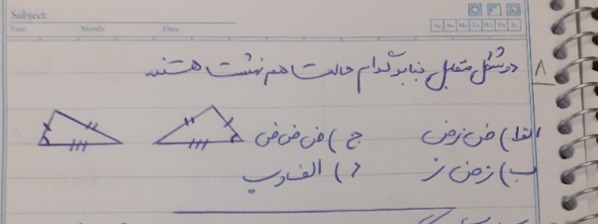 Subject:
Year: Month: Date:
Sa Su Mo Tu We Th Fr
۸ دو شکل مقابل بنابر کدام حالت هم نهشت هستند
الف) ض ز ض ج) ض ض ض
ب) ز ض ز د) الف و ب